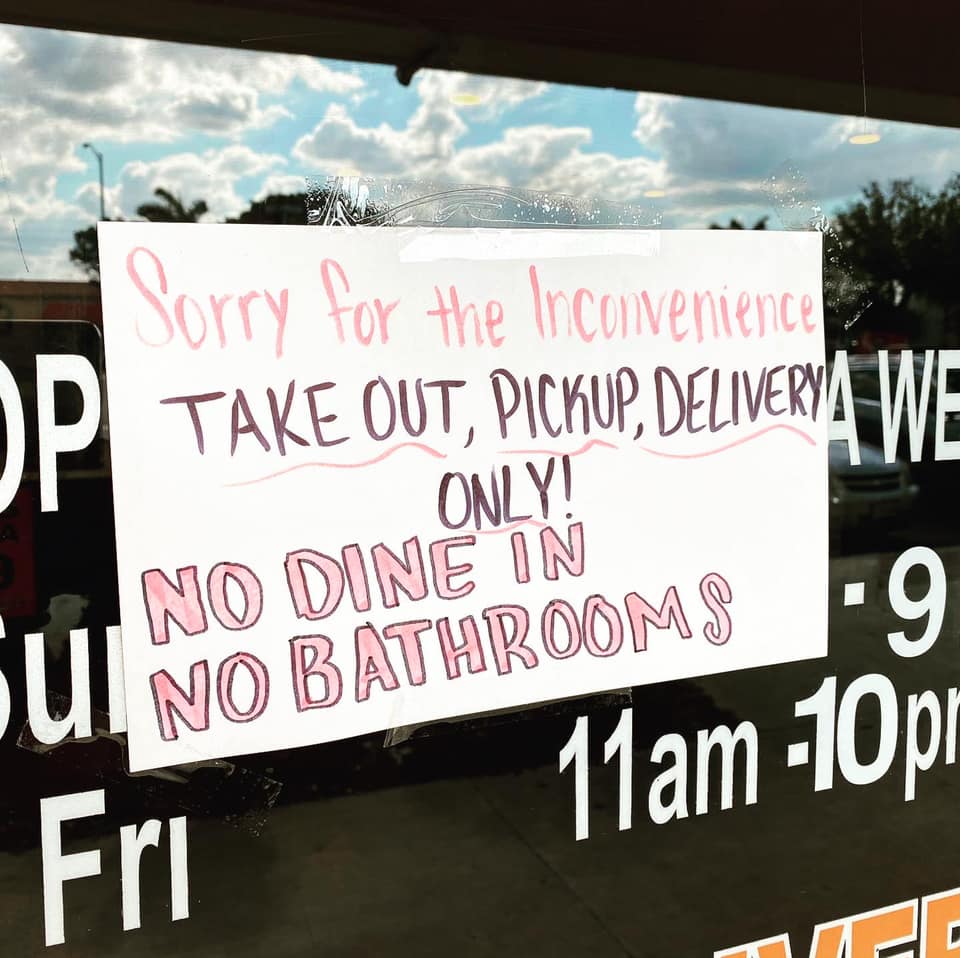 Sorry for the Inconvenience
TAKE OUT, PICKUP, DELIVERY
ONLY!
NO DINE IN
NO BATHROOMS
OP A WE
Su - 9
Fri 11am -10p
VER